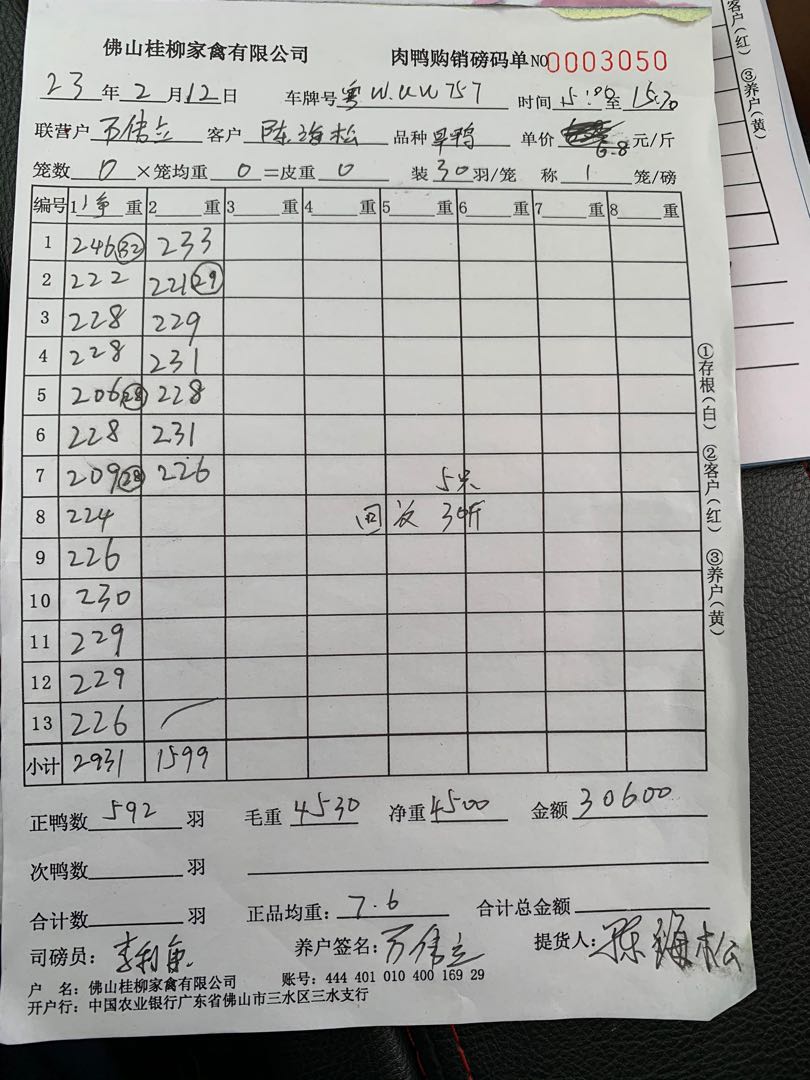 佛山桂柳家禽有限公司 肉鸭购销磅码单 NO 0003050
23年2月12日 车牌号 粤W.UW757 时间 15:00至15:30
联营户 万伟立 客户 陈海松 品种 旱鸭 单价 6.8 元/斤
笼数 0 ×笼均重 0 =皮重 0 装30羽/笼 称 1 笼/磅
编号 1 净 重 2 重 3 重 4 重 5 重 6 重 7 重 8 重
1 246(32) 233
2 222 221(29)
3 228 229
4 228 231
5 206(28) 228
6 228 231
7 209(28) 226
5只
8 224 回 30斤
9 226
10 230
11 229
12 229
13 226
小计 2931 1599
正鸭数 592 羽 毛重 4530 净重 4500 金额 30600
次鸭数 羽
合计数 羽 正品均重: 7.6 合计总金额
司磅员: 养户签名: 万伟立 提货人: 陈海松
户 名: 佛山桂柳家禽有限公司 账号: 444 401 010 400 169 29
开户行: 中国农业银行广东省佛山市三水区三水支行
①存根(白) ②客户(红) ③养户(黄)
客户(红) ③养户(黄)